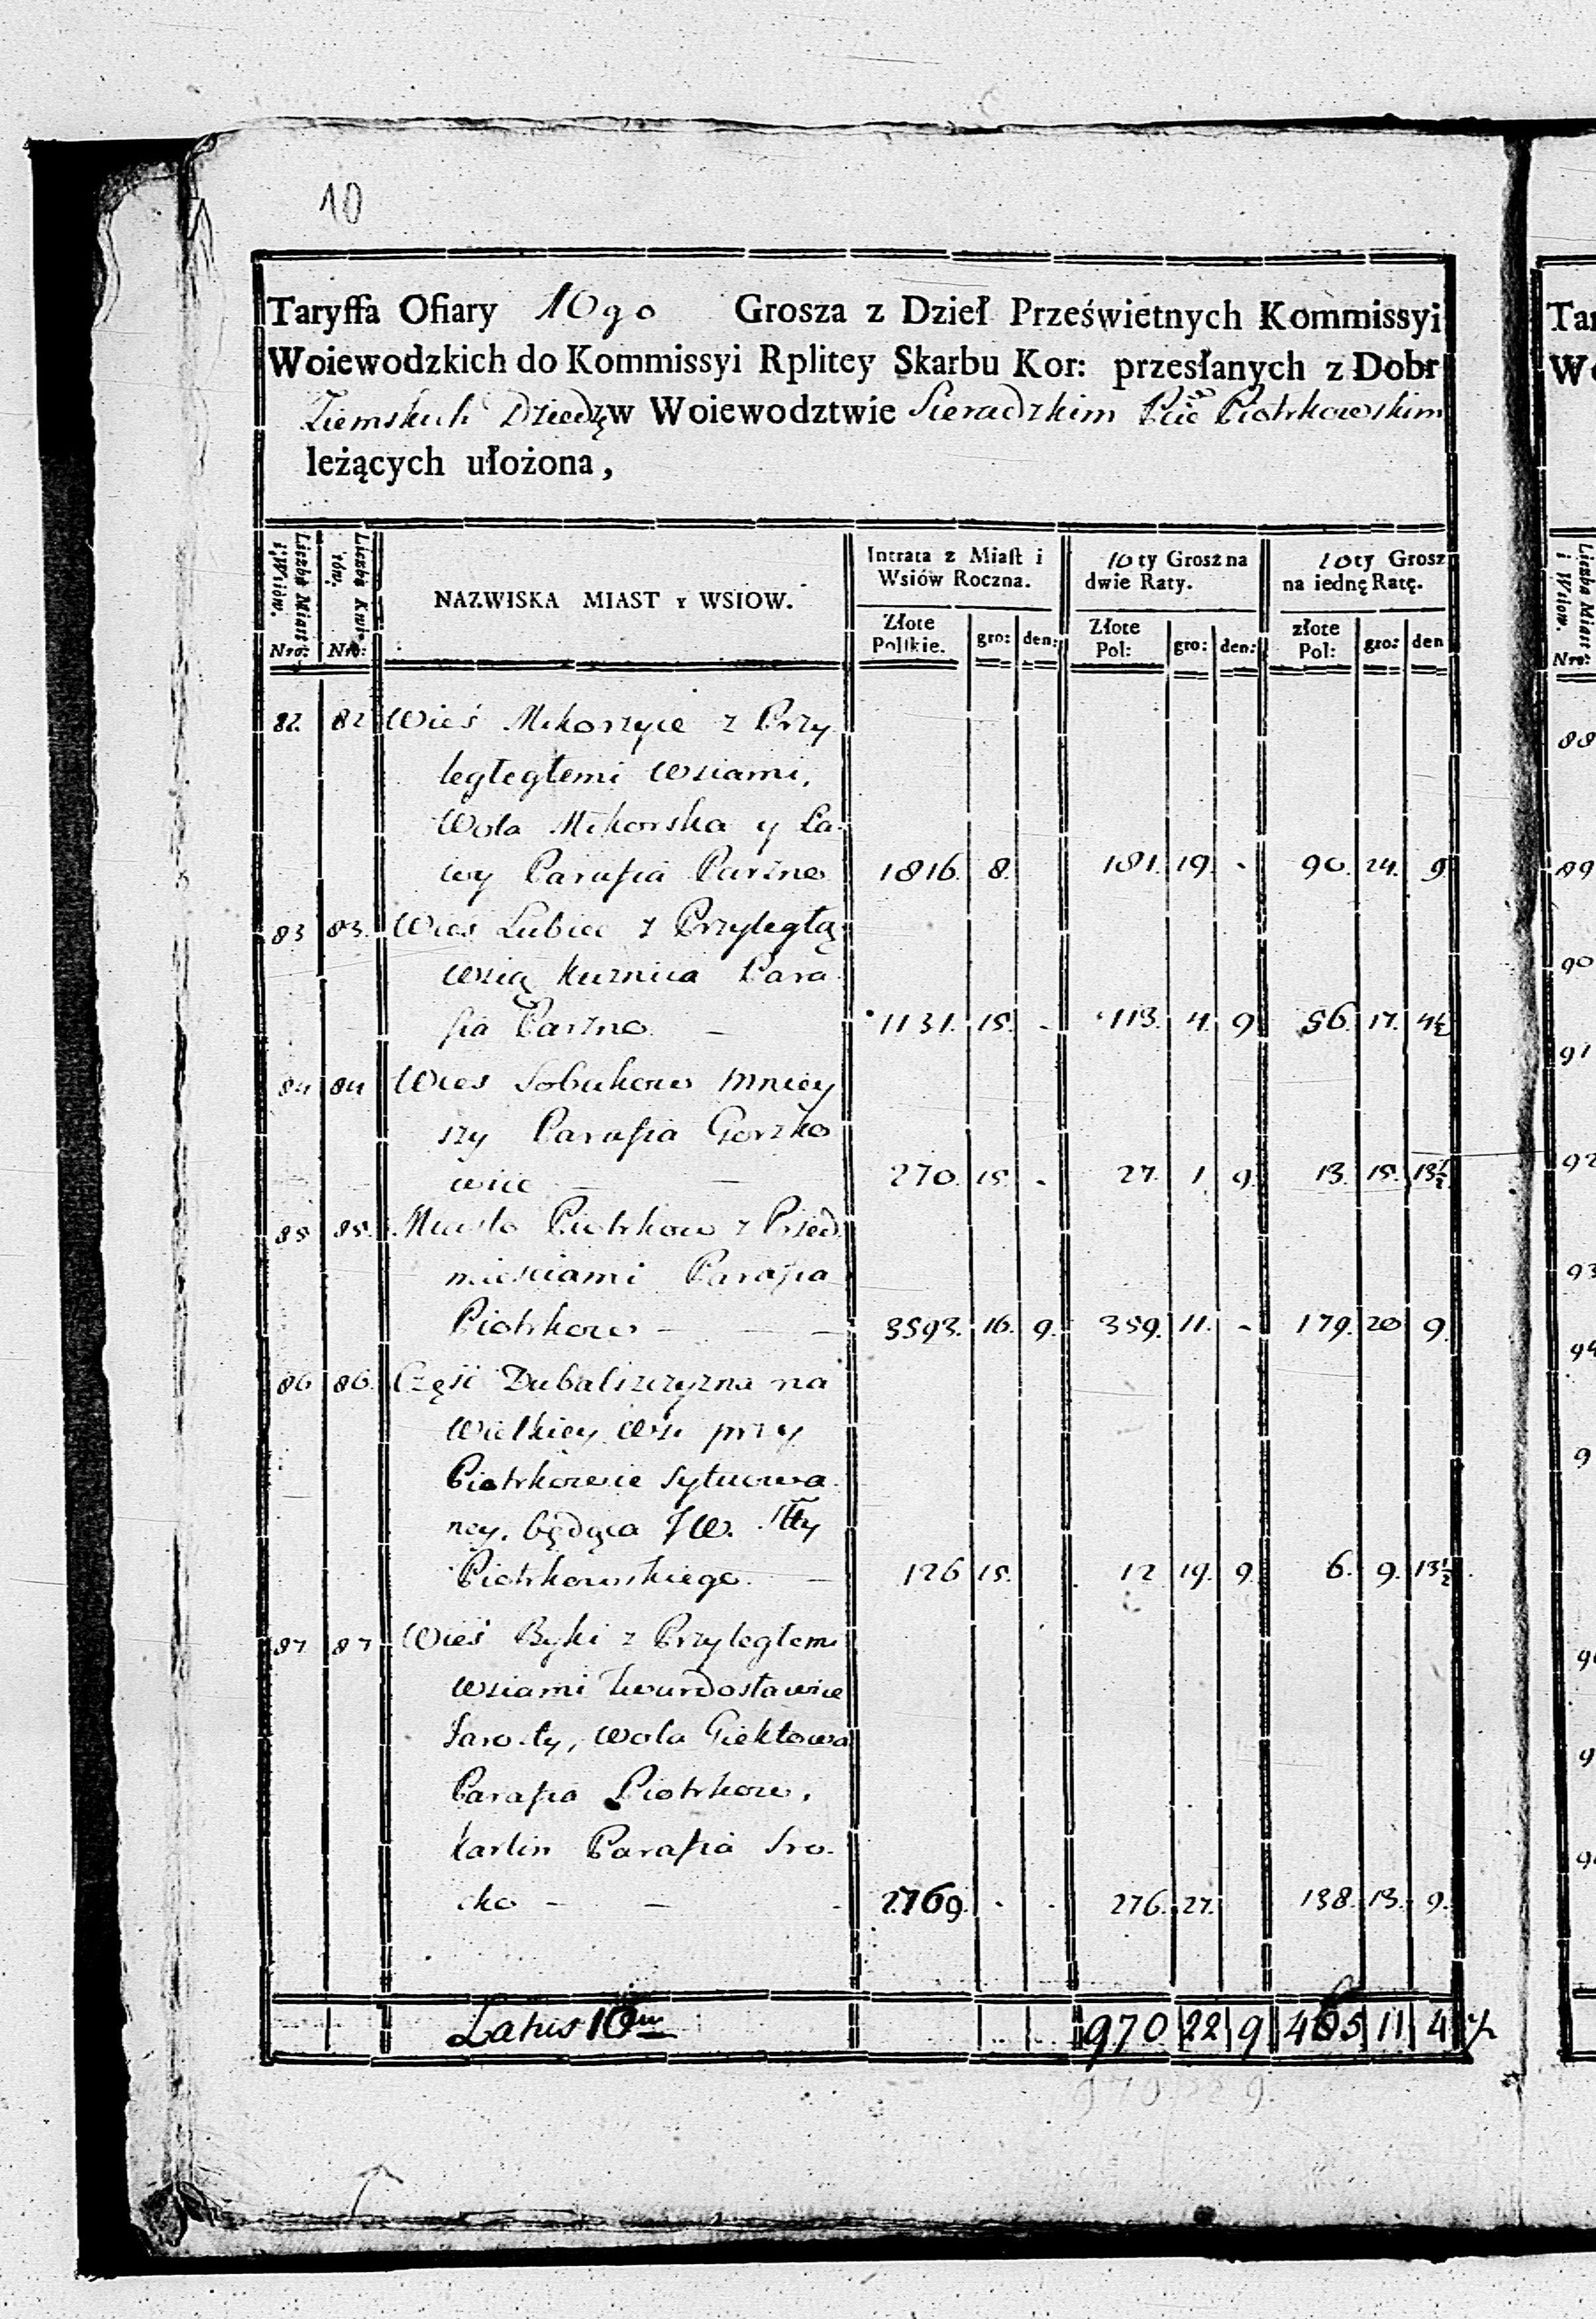 10
Taryffa Ofiary 10go Grosza z Dzieł Prześwietnych Kommissyi
Woiewodzkich do Kommissyi Rplitey Skarbu Kor: przesłanych z Dobr
Ziemskich Dziedz: w Woiewodztwie Sieradzkim Pcie Piotrkowskim
leżących ułożona,
Liczba Miast i Wsiów. Nro: Liczba Kwitów. Nro: NAZWISKA MIAST Y WSIOW. Intrata z Miast i Wsiów Roczna. Złote Polskie. gro: den: 10ty Grosz na dwie Raty. Złote Pol: gro: den: 10ty Grosz na iednę Ratę. złote Pol: gro: den
82. 82 Wieś Mikorzyce z Przy
legległemi wsiami,
Wola Mikorska y Ła-
wy Parafia Parzno 1816. 8. 181. 19. - 90. 24. 9
83 83. Wies Lubiec z Przyległą
wsią Kuznica Para
fia Parzno. — 1131. 15. - 113. 4. 9 56. 17. 4½
84 84 Wies Sobakow mniey
szy Parafia Gorzko
wice — — 270. 15. - 27. 1. 9. 13. 15. 13½
85 85. Miasto Piotrkow z Przed
miesciami Parafia
Piotrkow — — — 3593. 16. 9. 359. 11. - 179. 20 9.
86 86. Część Dubalszczyzna na
Wielkiey Wsi przy
Piotrkowie sytuowa
ney, będąca JW. Stty
Piotrkowskiego. — 126 15. 12 19. 9. 6. 9. 13½
87 87 Wieś Byki z Przyległemi
wsiami Twardosławice
Jarosty, Wola Giekłowa
Parafia Piotrkow,
Karlin Parafia Sro-
cko — — - 2769. - - 276. 27. 138. 13. 9.
Latus 10m 970 22 9 465 11 4½
970 22 9.
Tar
Wo
Liczba Miast i Wsiow. Nro:
88
89
90
91
92
93
94
9
9
9